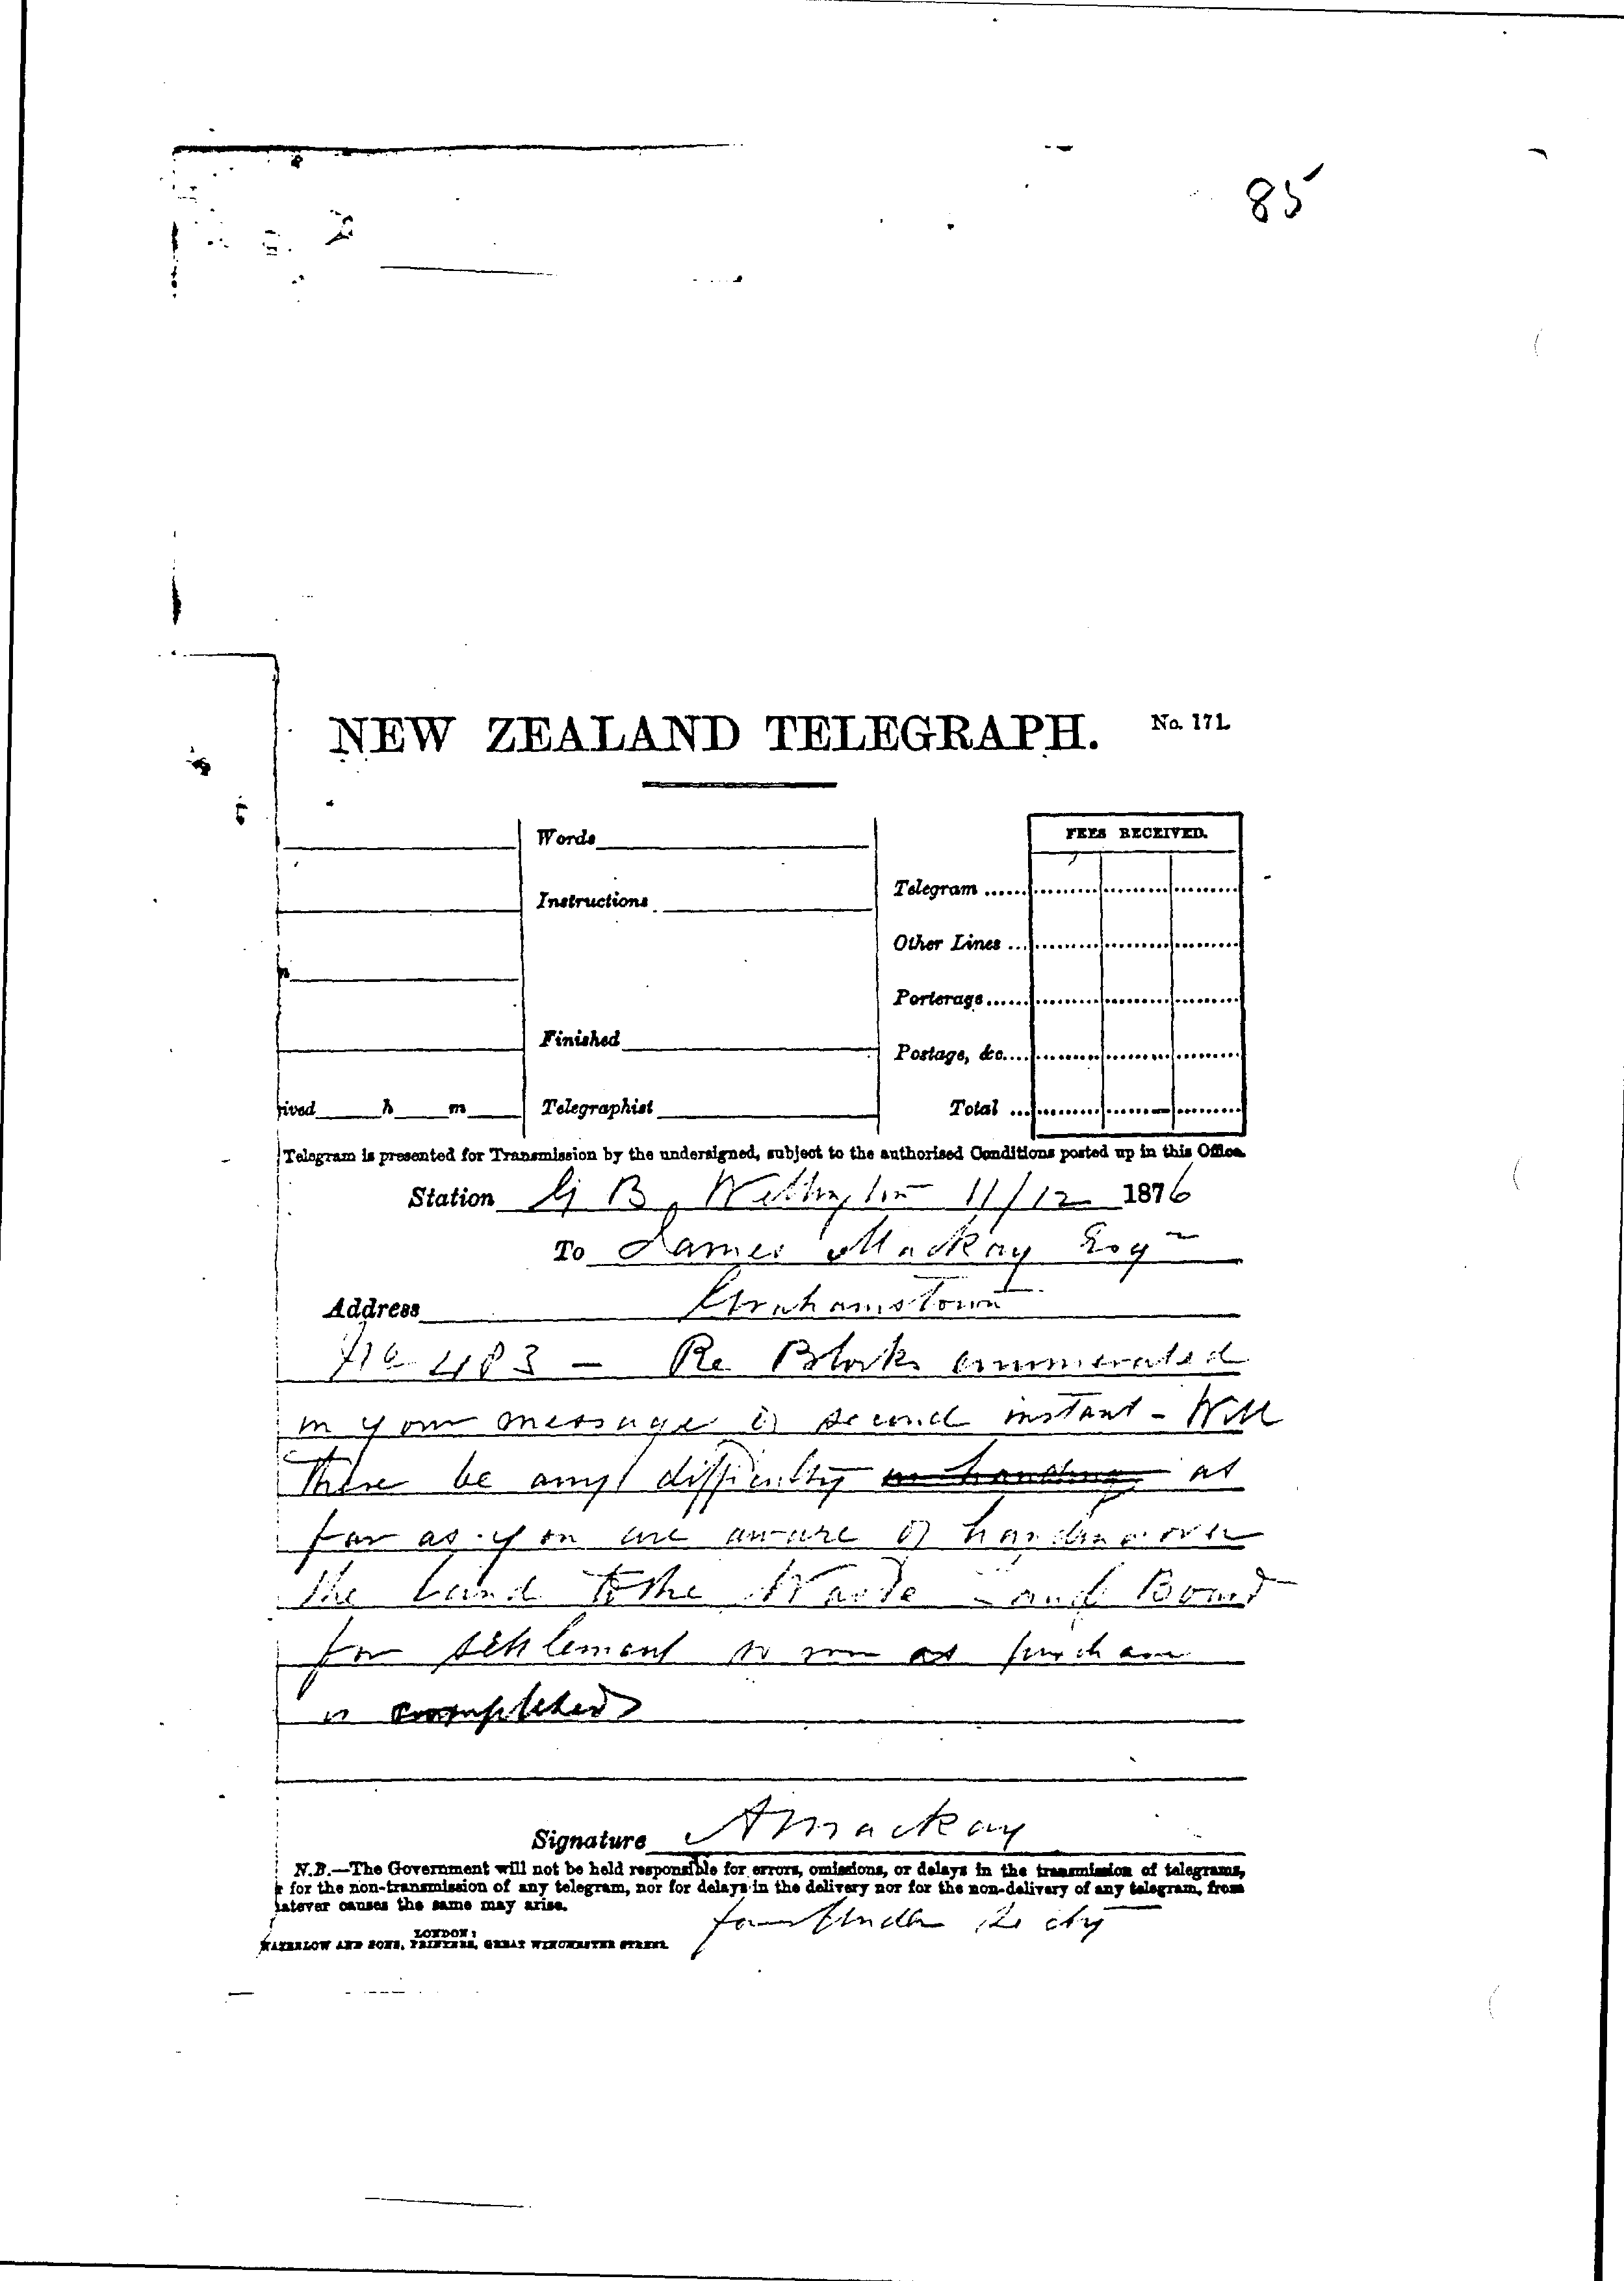 85
NEW ZEALAND TELEGRAPH. No. 171.
FEES RECEIVED.
Words
Telegram ......
Instructions
Other Lines ...
Porterage ......
Finished
Postage, &c....
ived h m Telegraphist Total ...
Telegram is presented for Transmission by the undersigned, subject to the authorised Conditions posted up in this Office.
Station G B, Wellington 11/12 1876
To James Mackay Esqr
Address Grahamstown
No 483 – Re Blocks enumerated
in your message of second instant – Will
there be any difficulty in handing as
far as you are aware of handing over
the land to the Waste Land Board
for settlement so soon as purchase
is completed
Signature A Mackay
N.B.—The Government will not be held responsible for errors, omissions, or delays in the transmission of telegrams,
r for the non-transmission of any telegram, nor for delays in the delivery nor for the non-delivery of any telegram, from
atever causes the same may arise.
for Under Secty
LONDON:
WATERLOW AND SONS, PRINTERS, GREAT WINCHESTER STREET.